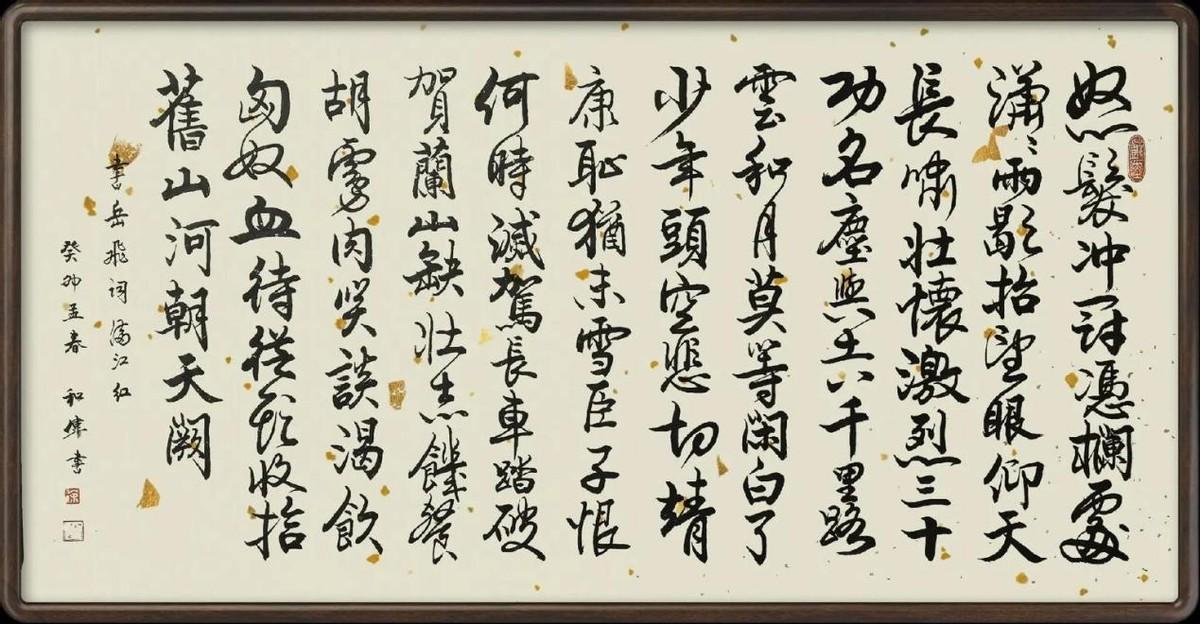 怒髮冲冠憑欄處
瀟々雨歇抬望眼仰天
長嘯壯懷激烈三十
功名塵與土八千里路
雲和月莫等閑白了
少年頭空悲切靖
康恥猶未雪臣子恨
何時滅駕長車踏破
賀蘭山缺壯志饑餐
胡虜肉笑談渴飲
匈奴血待從頭收拾
舊山河朝天闕
書岳飛詞滿江紅
癸卯孟春 和偉書